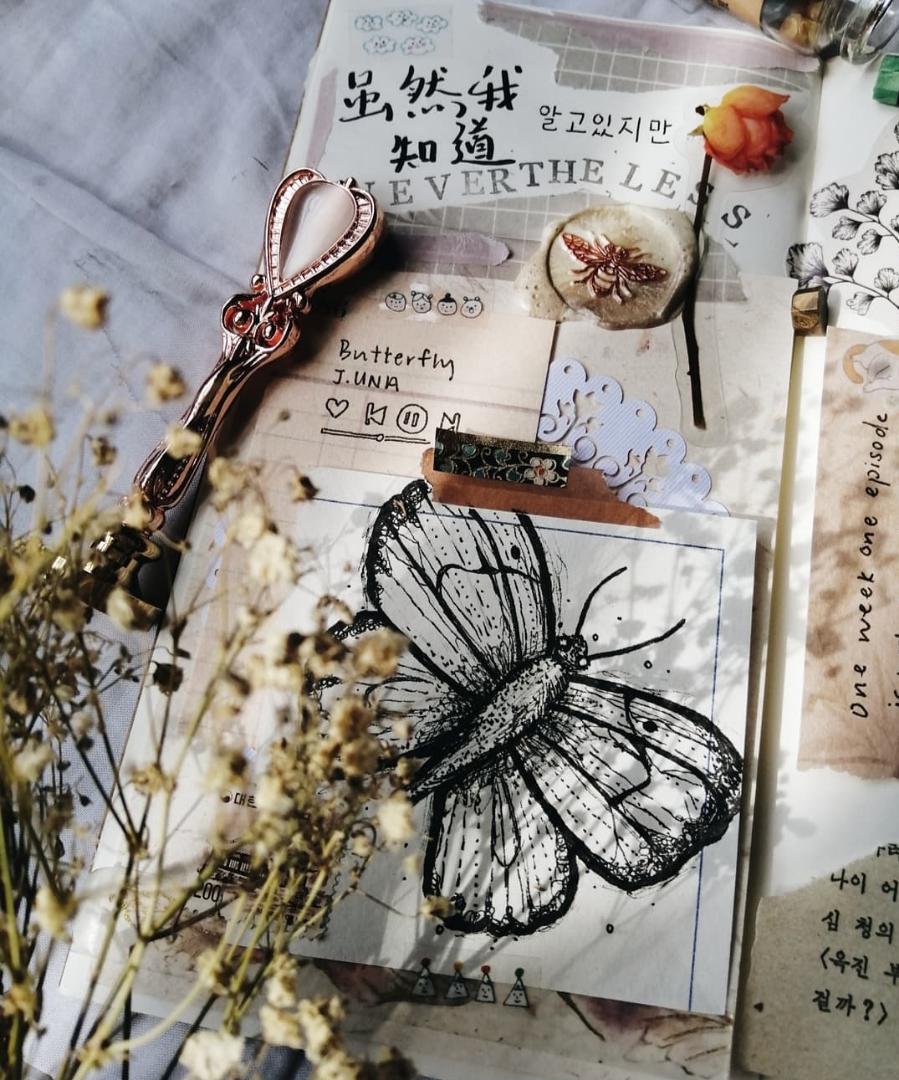 虽然我
知道
알고있지만
NEVERTHELESS,
Butterfly
J.UNA
One week one episode
대한
200
나이 어
심 청의
걸까?>